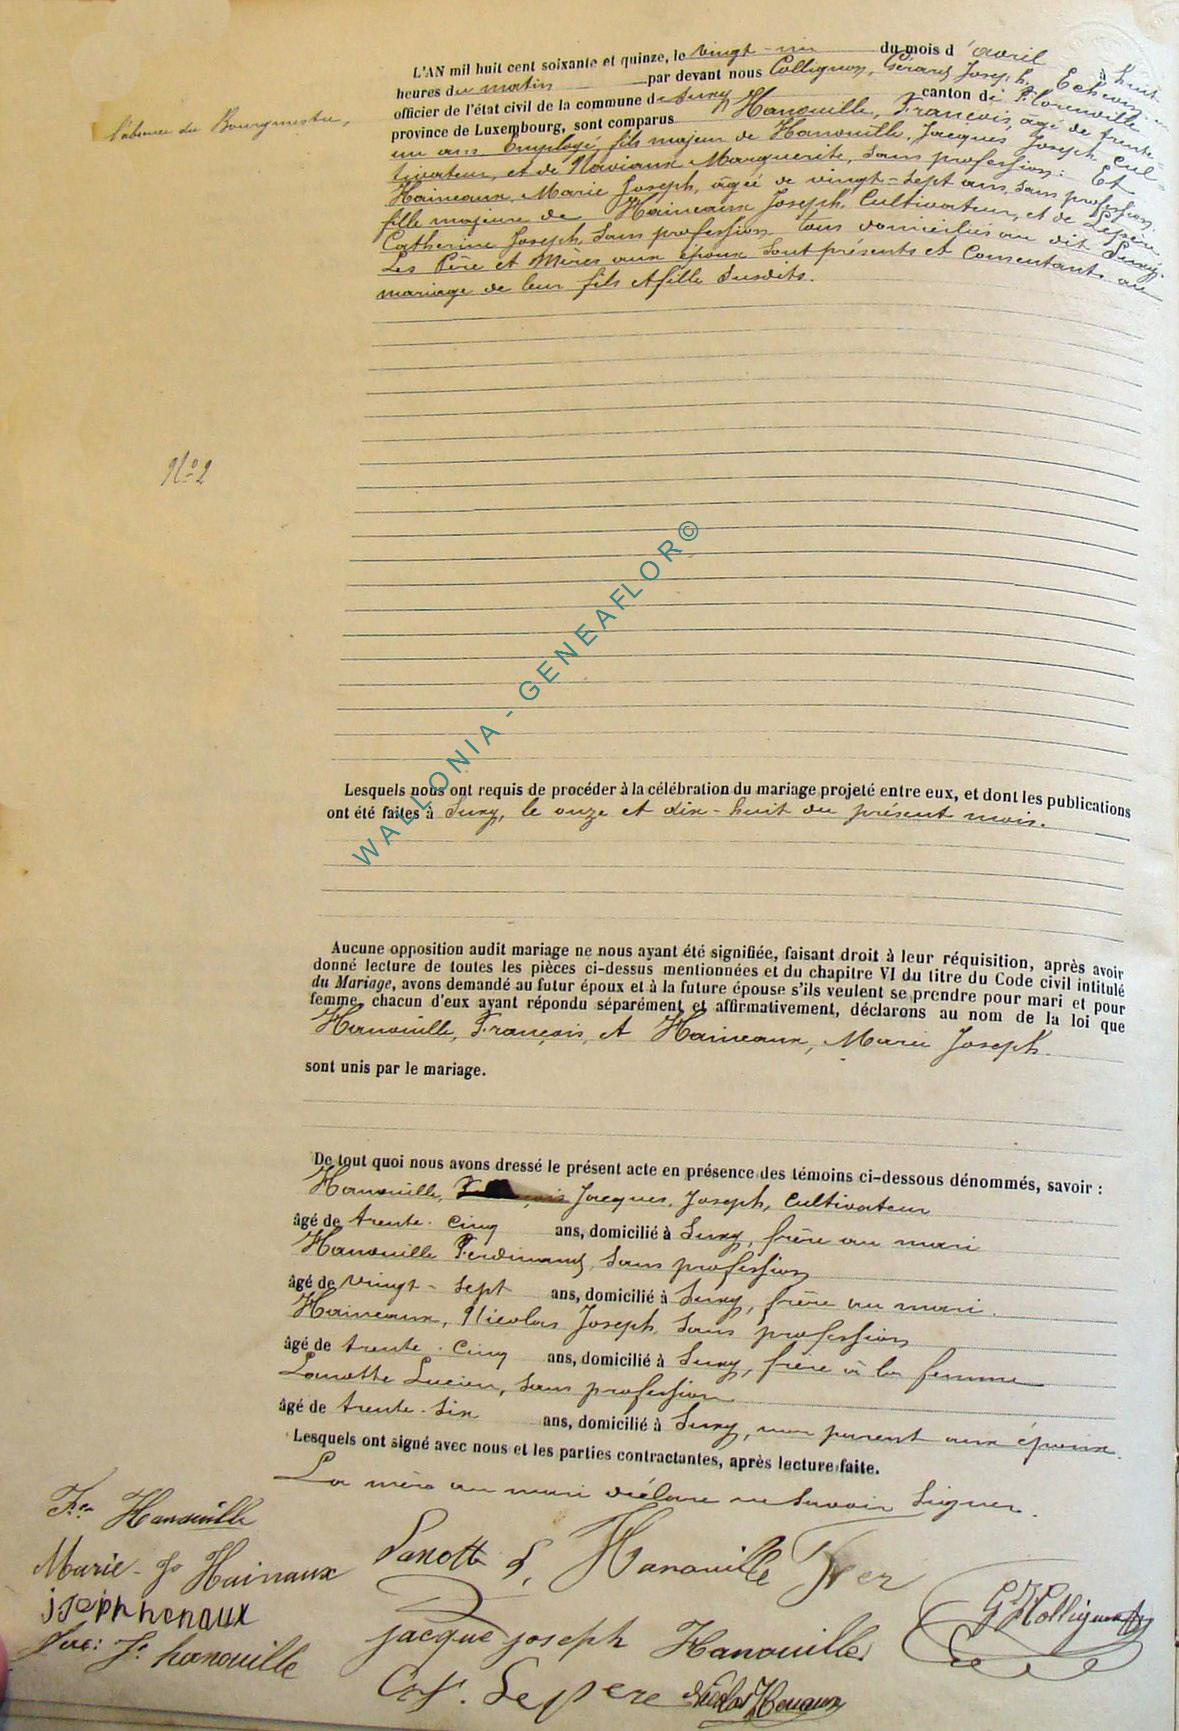 L'AN mil huit cent soixante et quinze, le vingt-un du mois d'avril à huit
heures du matin par devant nous Collignon, Gérard Joseph, Echevin
l'absence du Bourgmestre,
officier de l'état civil de la commune de Suxy canton de Florenville
province de Luxembourg, sont comparus Hanouille, François, âgé de trente-
un ans Employé, fils majeur de Hanouille, Jacques Joseph, Cul-
tivateur, et de Naviaux Marguerite, sans profession: Et
Haineaux, Marie Joseph, âgée de vingt-sept ans, sans profession,
fille majeure de Haineaux Joseph, Cultivateur, et de Lepère
Catherine Joseph, sans profession tous domiciliés au dit Suxy.
Les Père et Mères aux époux sont présents et Consentants au
mariage de leur fils et fille susdits.
N° 2
WALLONIA - GENEAFLOR©
Lesquels nous ont requis de procéder à la célébration du mariage projeté entre eux, et dont les publications
ont été faites à Suxy, le onze et dix-huit du présent mois.
Aucune opposition audit mariage ne nous ayant été signifiée, faisant droit à leur réquisition, après avoir
donné lecture de toutes les pièces ci-dessus mentionnées et du chapitre VI du titre du Code civil intitulé
du Mariage, avons demandé au futur époux et à la future épouse s'ils veulent se prendre pour mari et pour
femme, chacun d'eux ayant répondu séparément et affirmativement, déclarons au nom de la loi que
Hanouille, François, et Haineaux, Marie Joseph
sont unis par le mariage.
De tout quoi nous avons dressé le présent acte en présence des témoins ci-dessous dénommés, savoir :
Hanouille, Jacques, Joseph, Cultivateur
âgé de trente-cinq ans, domicilié à Suxy, frère au mari
Hanouille Ferdinand, sans profession
âgé de vingt-sept ans, domicilié à Suxy, frère au mari.
Haineaux, Nicolas Joseph, sans profession
âgé de trente-cinq ans, domicilié à Suxy, frère à la femme
Lanotte Lucien, sans profession
âgé de trente-six ans, domicilié à Suxy, non parent aux époux.
Lesquels ont signé avec nous et les parties contractantes, après lecture faite.
La mère au mari déclare ne savoir signer.
Fçs Hanouille
Lanotte L. Hanouille Fer
Marie-Js Hainaux
G J Collignon
joseph henaux
jacque joseph Hanouille
Jac: Jh hanouille
Cat. Lepere Nicolas Henaux